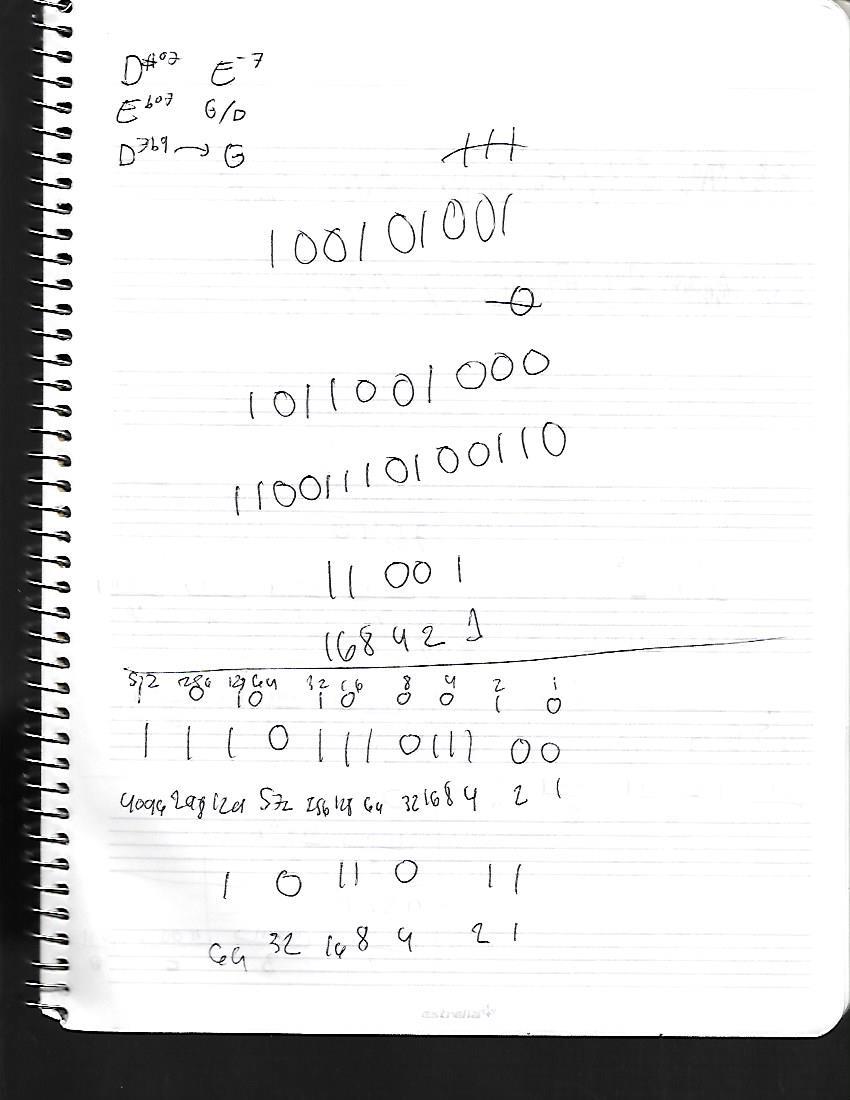 D#o7 E-7
Ebo7 G/D
D7b9 → G
100101001
0
1011001000
11001110100110
11001
16 8 4 2 1
512 256 128 64 32 16 8 4 2 1
0 1 0 1 0 0 0 1 0
1 1 1 0 1 1 1 0 1 1 1 0 0
4096 512 256 128 64 32 16 8 4 2 1
1 0 1 1 0 1 1
64 32 16 8 4 2 1
estrella